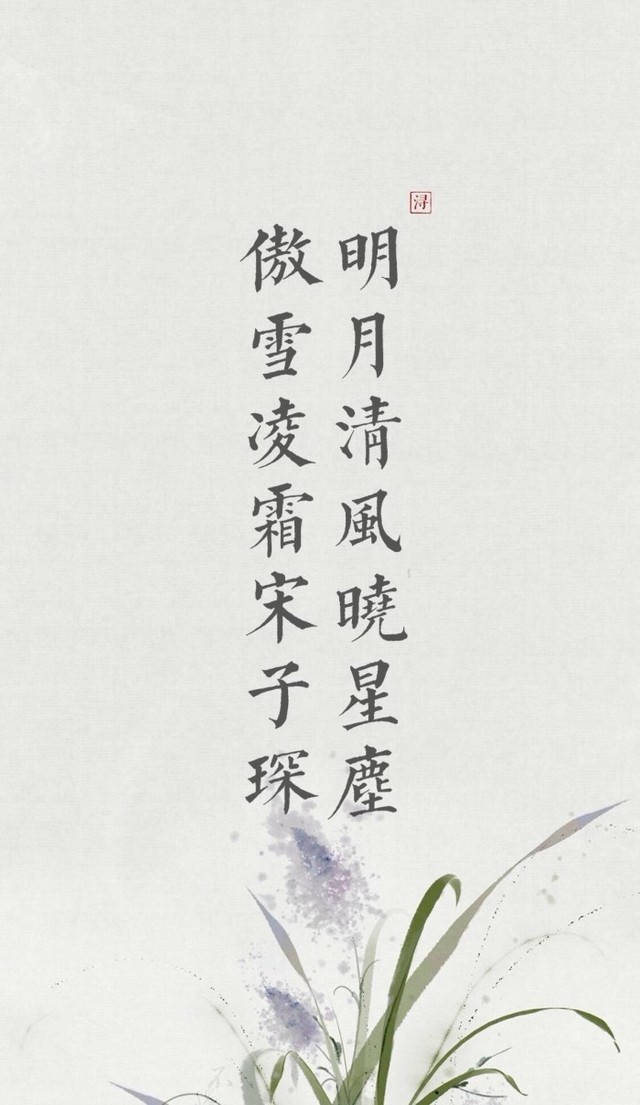 浔
明月清風曉星塵
傲雪凌霜宋子琛